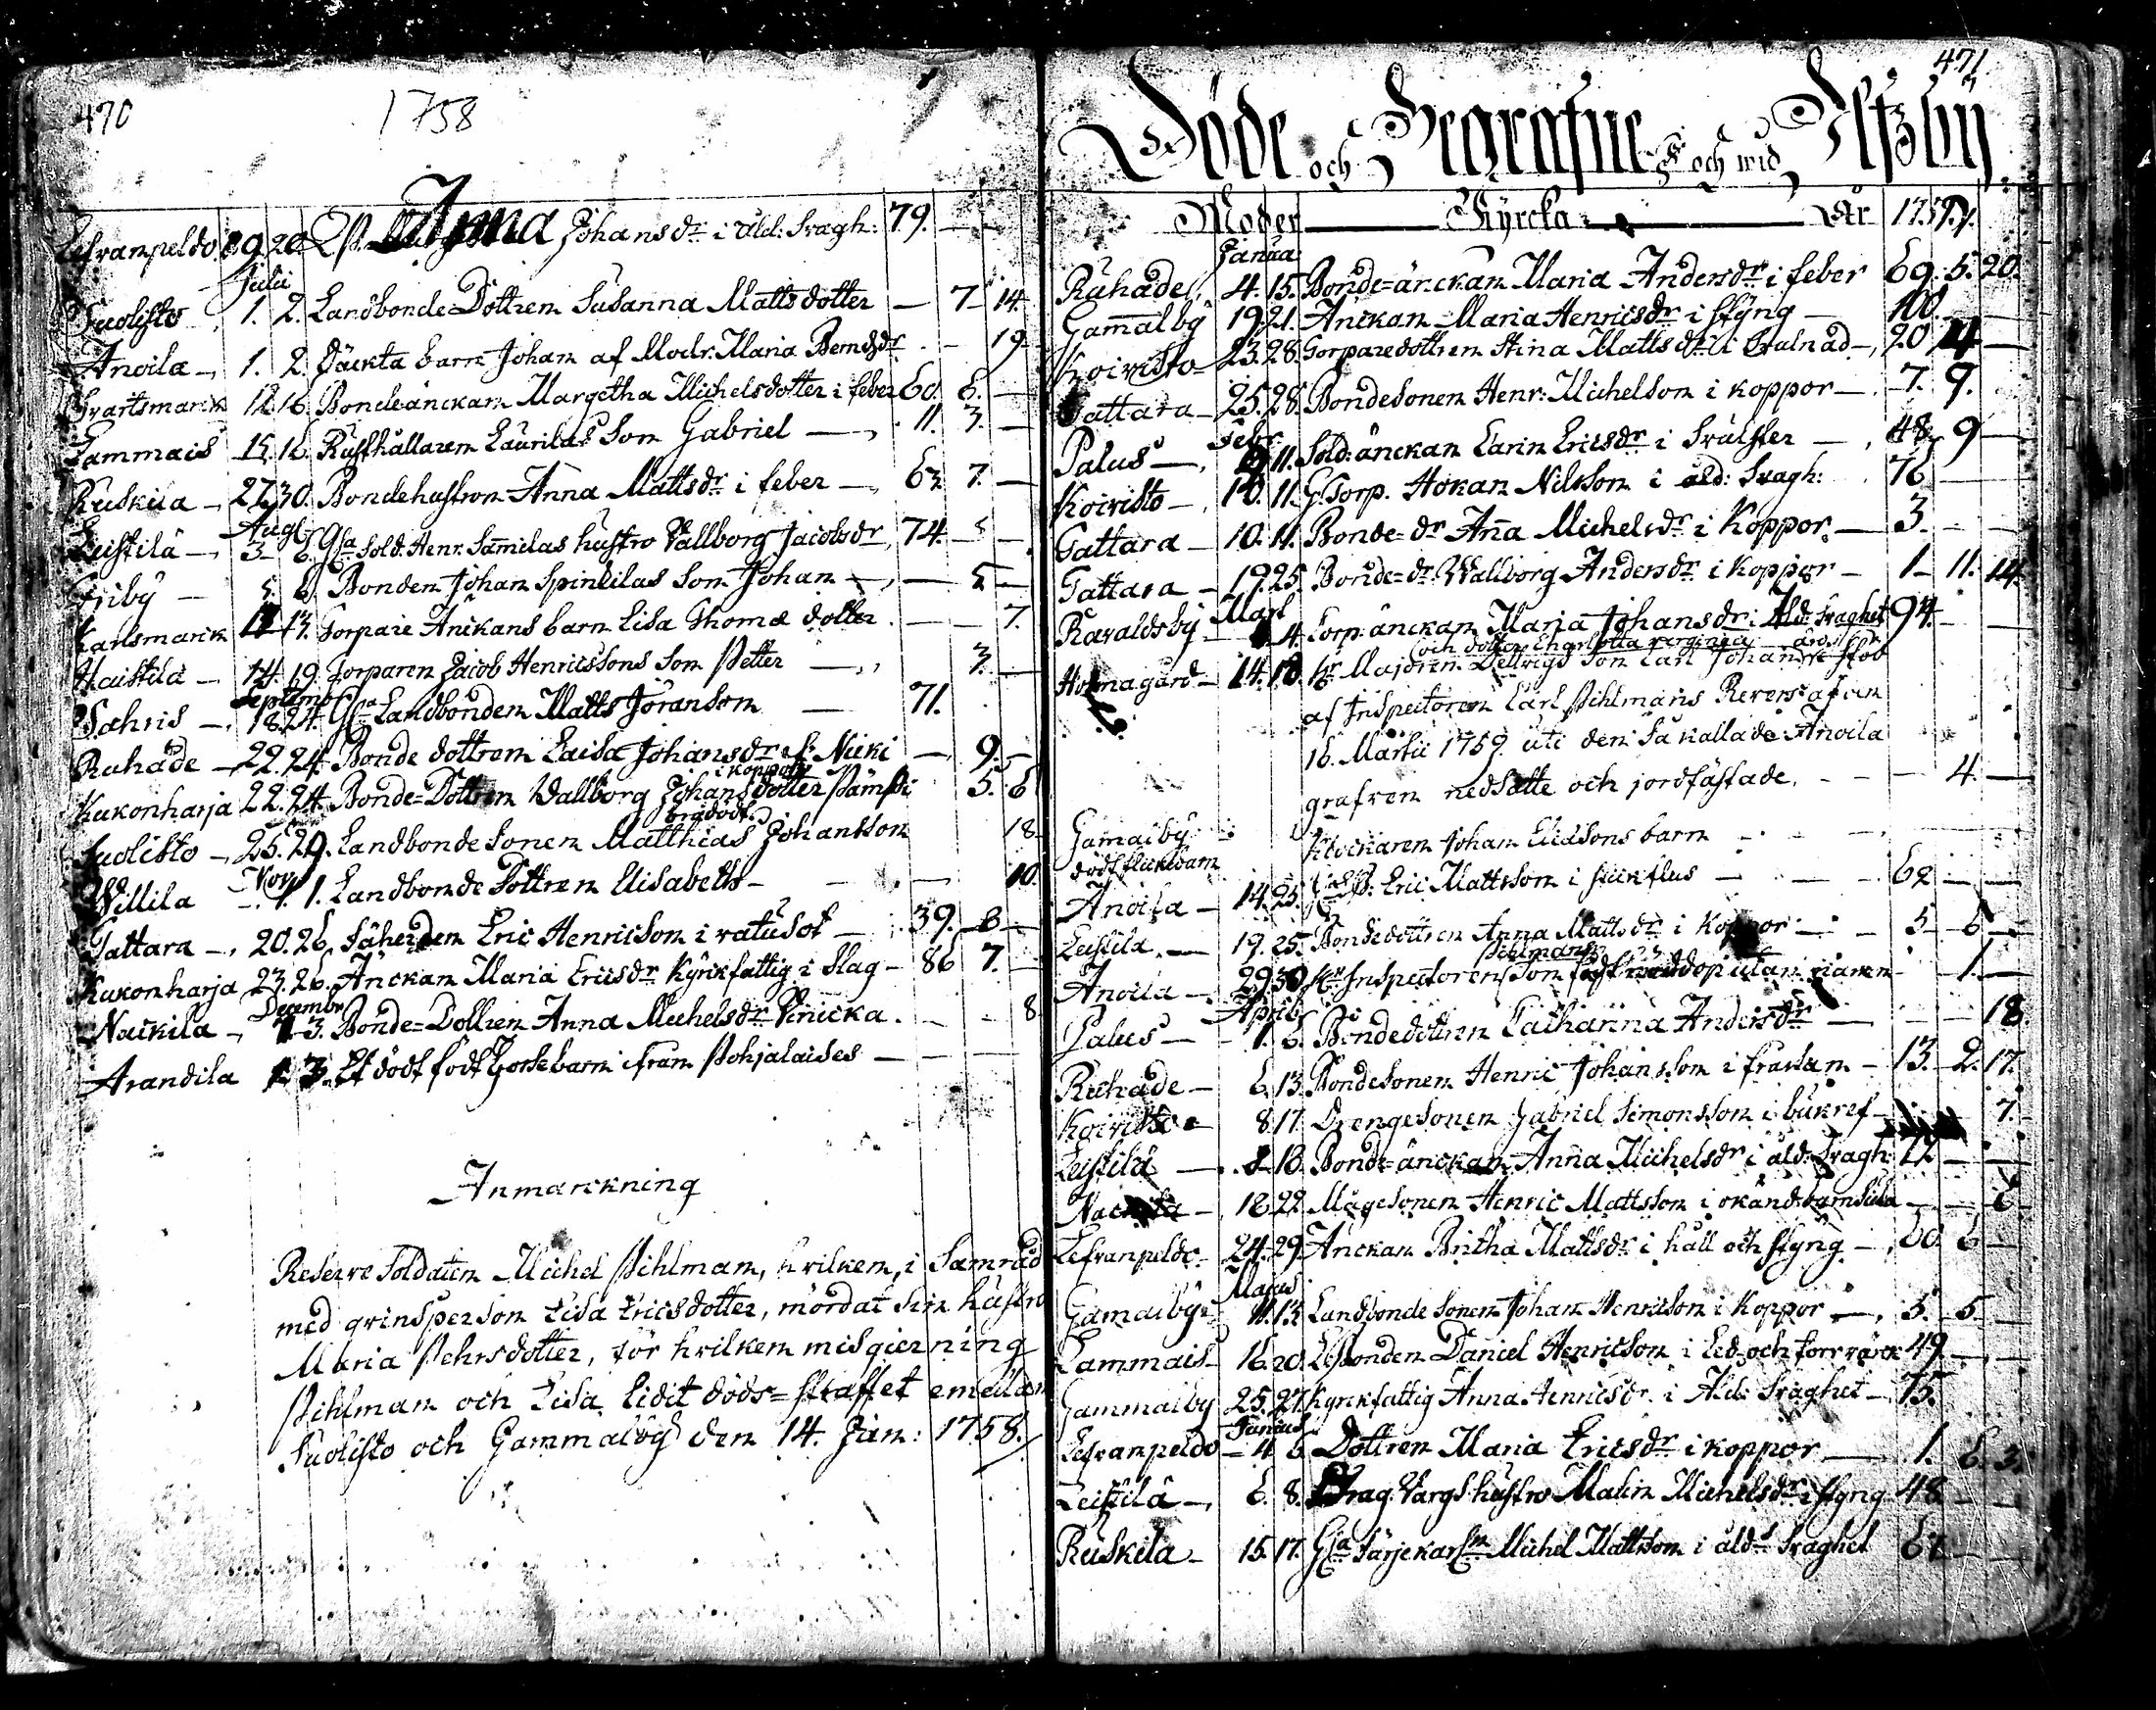 470
1758
Lefranpeldo. 19. 20. Anna Johans dr i åld: Sragh: 79.
Julii
Suolisto 1. 2. Landbonde Dottren Susanna Mattsdotter — 7 14.
Anoila — 1. 2. Oäckta barn Johan af Modr. Maria Berndsdr — 19.
Svartsmarck 12. 16. Bondeänckan Margetha Michelsdotter i feber 60. 6. —
Lammais 15. 16. Rusthållaren Laurilas Son Gabriel — 11. 3. —
Ruskila — 27. 30. Bondehustron Anna Matts dr i feber — 63 7. —
Augt
Leistilä — 3. 6. Gla Sold. Henr. Samilas hustro Vallborg Jacobsdr 74 — —
Friby — 5. 6. Bonden Johan Spinkilas Son Johan — 5 —
Karlsmarck 11 13. Torpare Änckans barn Lisa Thomæ dotter — — 7.
Haistila — 14. 19. Torparen Jacob Henricssons Son Petter — 3. —
Septemb
Vahris — 18. 24. Gla Landbonden Matts Jöransson — 71.
Ruhade — 22. 24. Bonde dottren Caisa Johans dr Nicki — 9. —
i koppor
Kukonharja 22. 24. Bonde=Dottren Wallborg Johansdotter Pämpi 5. 6
brådödt
Suolisto — 25. 29. Landbonde Sonen Matthias Johansson 18.
Nov
Willila — 1. 1. Landbonde Dottren Elisabeth — 10.
Tattara — 20. 26. Fäherden Eric Henricson i ratusot — 39. 6 —
Kukonharja 23. 26. Änckan Maria Erics dr Kyrkfattig i Slag — 86 7. —
Decembr
Nackila — 1 3. Bonde=Dottren Anna Michels dr Vinicka. — 8
Arandila 1. 3. Et dödt födt Gosse barn ifrån Pohjalaises —
Anmärckning
Reserve Soldaten Michel Pihlman, hvilken, i Samråd
med qvinsperson Lisa Ericsdotter, mördat sin hustro
Maria Pehrsdotter, för hvilken misgierning
Pihlman och Lisa lidit döds=straffet emellan
Suolisto och Gammalby den 14. Jan: 1758.
471
Döde och Begrafne och wid Ulfsby
Moder Kyrcka År 1759.
Janua:
Ruhade. 4. 15. Bonde=änckan Maria Anders dr i feber 69. 5. 20.
Gamalby 19. 21. Änckan Maria Henrics dr i styng — 100.
Koivisto — 23. 28. Torparedottren Stina Matts dr i Trålnad — 20 4 —
Tattara — 25. 28. Bondesonen Henr: Michelson i koppor — 7. 9.
Febr
Palus — 11. Sold: änckan Carin Erics dr i Svulster — 48 9 —
Koivisto — 10. 11. G. Torp. Håkan Nilsson i åld: Sragh: 76
Tattara — 10. 11. Bonde=dr Anna Michelsdr i Koppor. — 3.
Tattara — 19. 25. Bonde=dr. Wallborg Andersdr i Koppor — 1 — 11. 14.
Mart
Ravaldsby — 4. Torp: änckan Maria Johansdr: Åld: Sraghet 94
och dotter Charlotta
Holmagård — 14. 18. Hr Majoren Dellvigs Son Carl Johan
af Inspectoren Carl Pihlmans Revers af den
16. Martii 1759. uti den så kallade Anoila
grafven nedsatte och jordfästade. 4.
Gamalby: Klockaren Johan Elidsons barn
dödt flickebarn
Anoila — 14. 25. Eric Mattsson i — 62 —
Leistila — 19. 25. Bondedottren Anna Matts dr i Koppor — 5 6 —
Pihlmans
Anoila — 29. 30. Hr Inspectoren Son utan namn — 1 —
April
Palus — 1. 6. Bondedottren Catharina Anders dr — 18.
Ruhade — 6. 13. Bondesonen Henric Johansson i frässan — 13. 2. 17.
Koivisto — 8. 17. Drengesonen Gabriel Simonsson i bukref — 7.
Leistila — 8. 13. Bonde=änckan Anna Michelsdr i åld: Sragh: 72
Nackila — 18. 22. Mågesonen Henric Mattsson i okänd barnsiuka — 6
Lefranpeldo 24. 29. Änckan Britha Mattsdr i håll och styng — 60 6 —
Majus
Gamalby — 11. 13. Landbonde Sonen Johan Henricson i Koppor — 5. 5 —
Lammais — 16. 20. Lsbonden Daniel Henricson i Led och torrvärck 49
Gammalby 25. 27. Kyrkfattig Anna Henricsdr i Åld: Sraghet — 75.
Junius
Lefranpeldo — 4 6 Dottren Maria Ericsdr i koppor — 1. 6. 3.
Leistila — 6. 8. Drag: Vargs hustro Malin Michelsdr i styng 48
Ruskila — 15. 17. Gla Färjekarlen Michel Mattson i ålds Sraghet 67